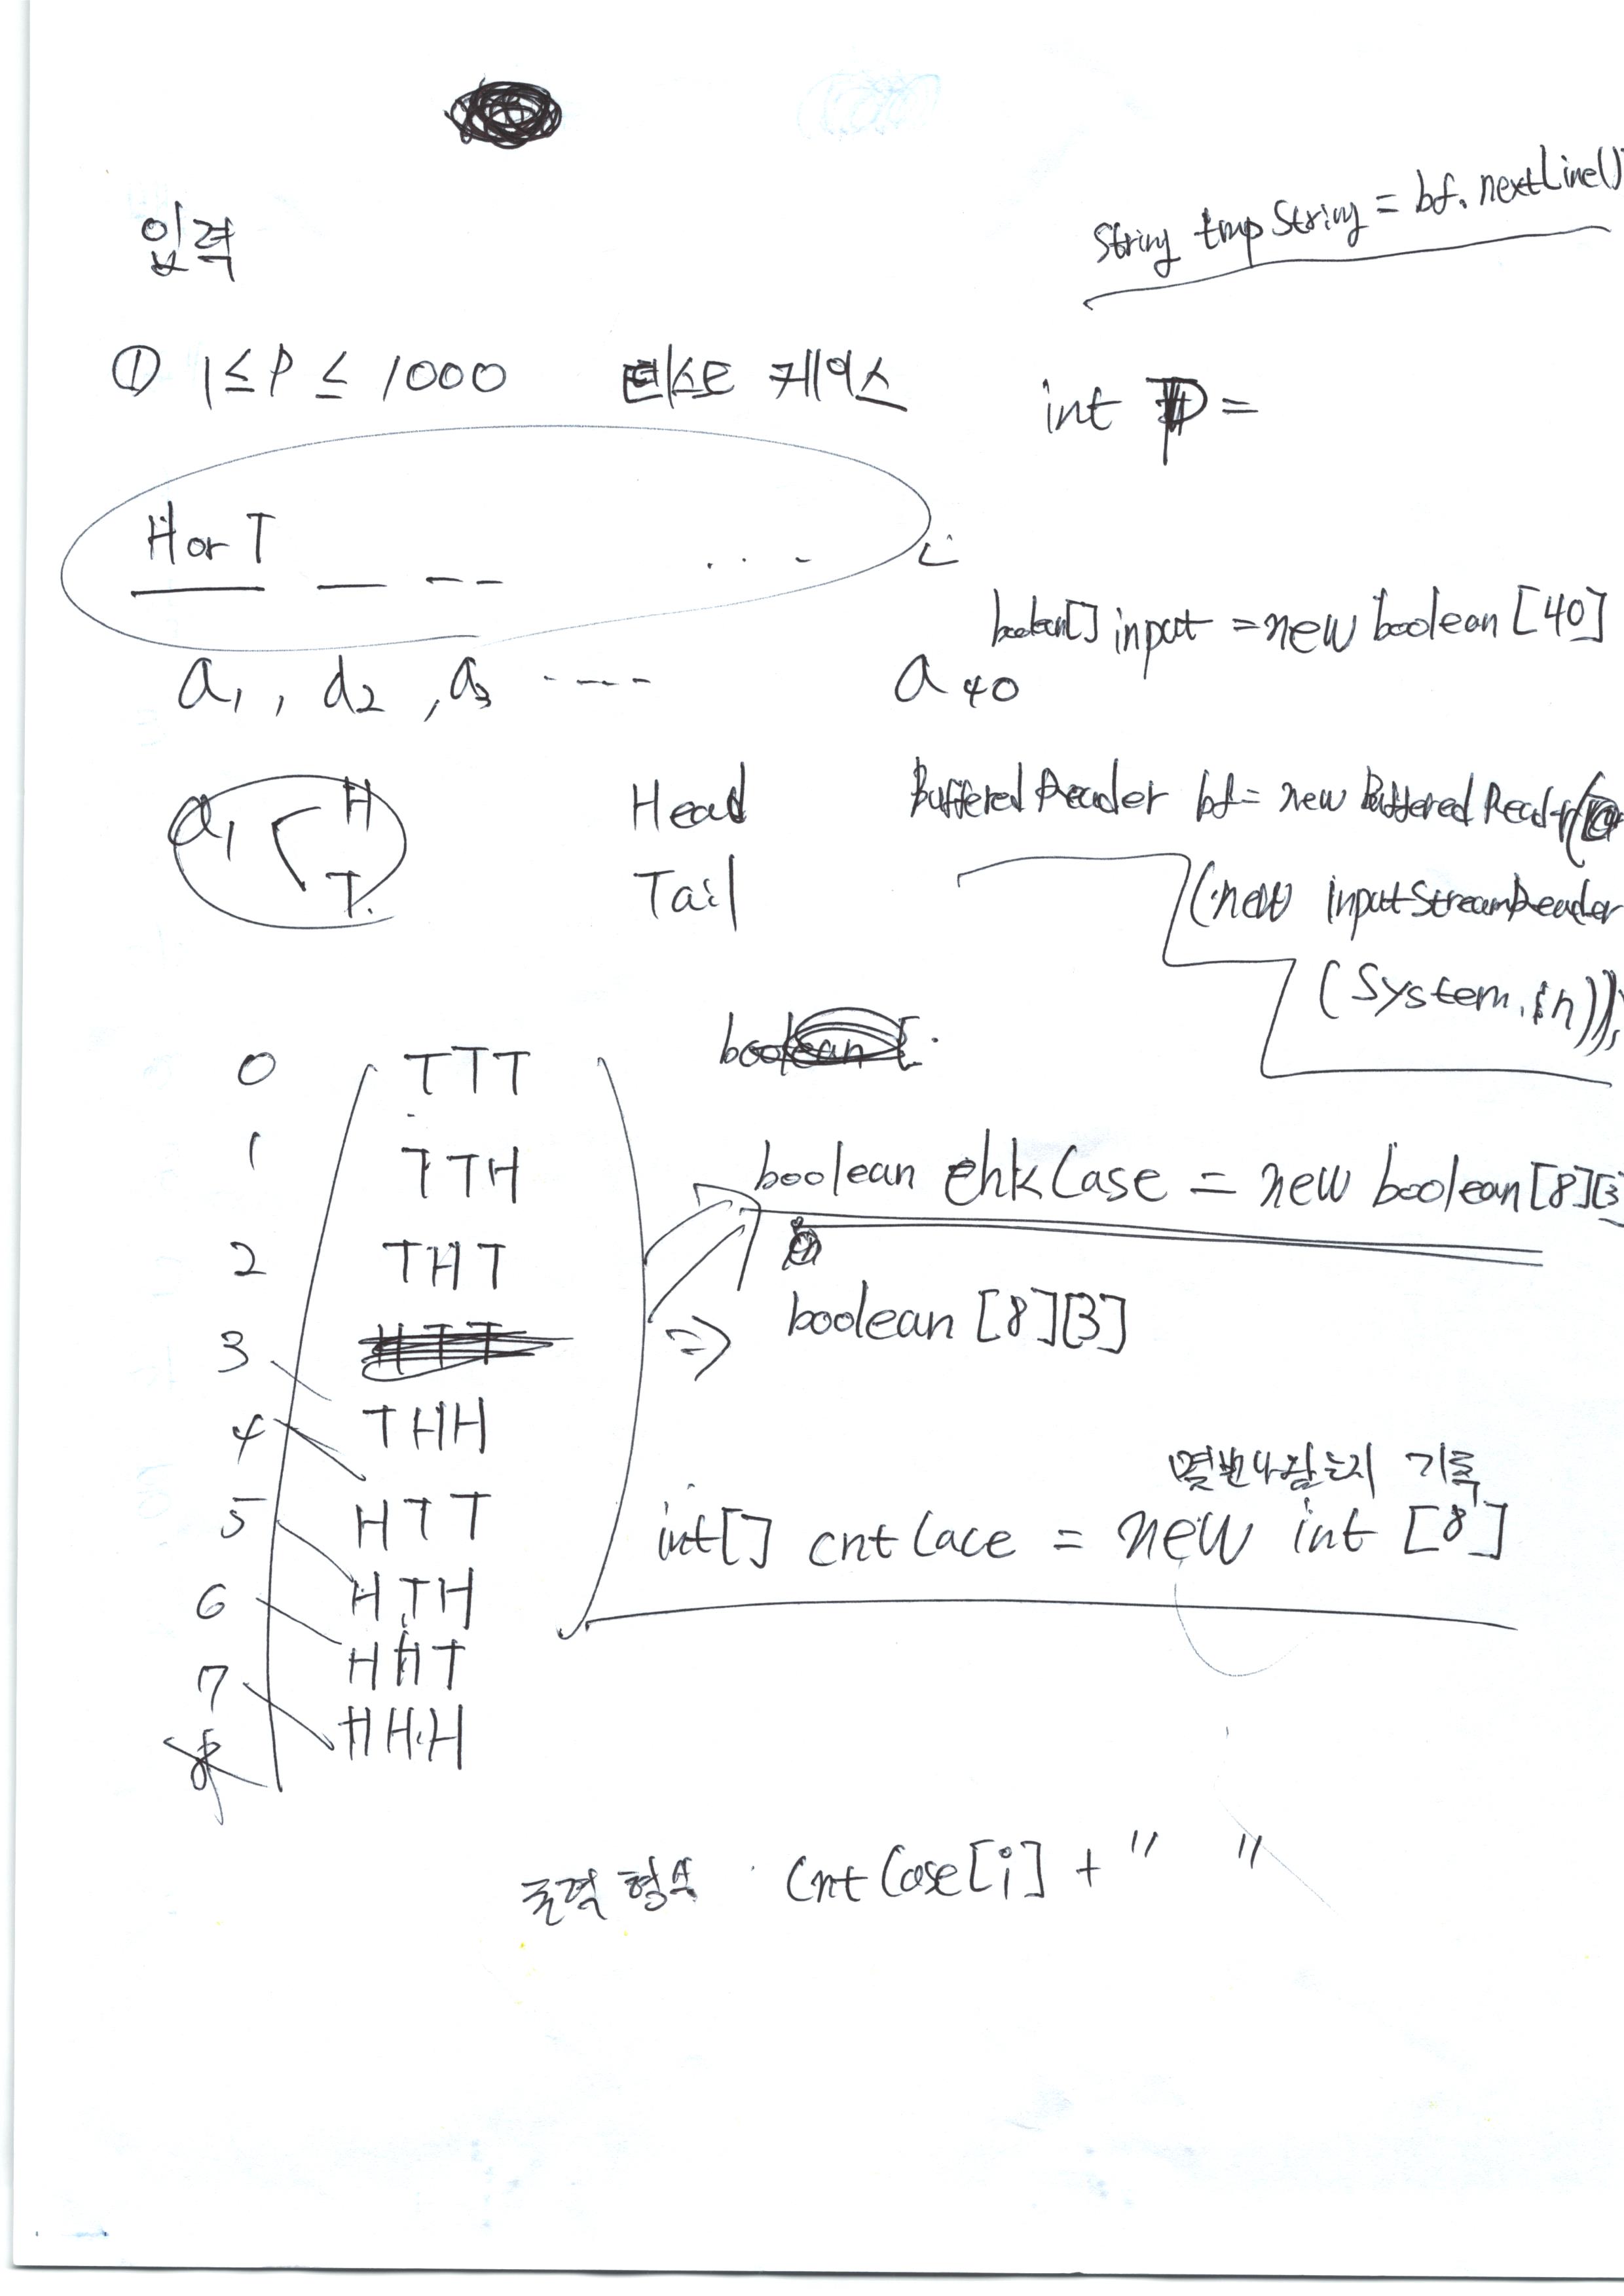 String tmpString = bf.nextLine()
입력
① 1≤P≤1000 테스트 케이스
int P =
H or T
. . .
boolean[] input = new boolean [40]
a1, a2, a3 ---- a40
a1 H
T.
Head
Tail
BufferedReader bf = new BufferedReader(
(new inputStreamReader
(System.in));
boolean [
0 TTT
1 TTH
2 THT
HTT
3 THH
4 HTT
5 HTH
6 HHT
7 HHH
8
boolean chkCase = new boolean[8][3
=> boolean [8][3]
몇번나왔는지 기록
int[] cntCace = new int [8]
출력 형식 cntCase[i] + " "